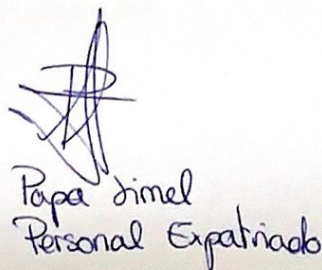 Papa Jimel
Personal Expatriado